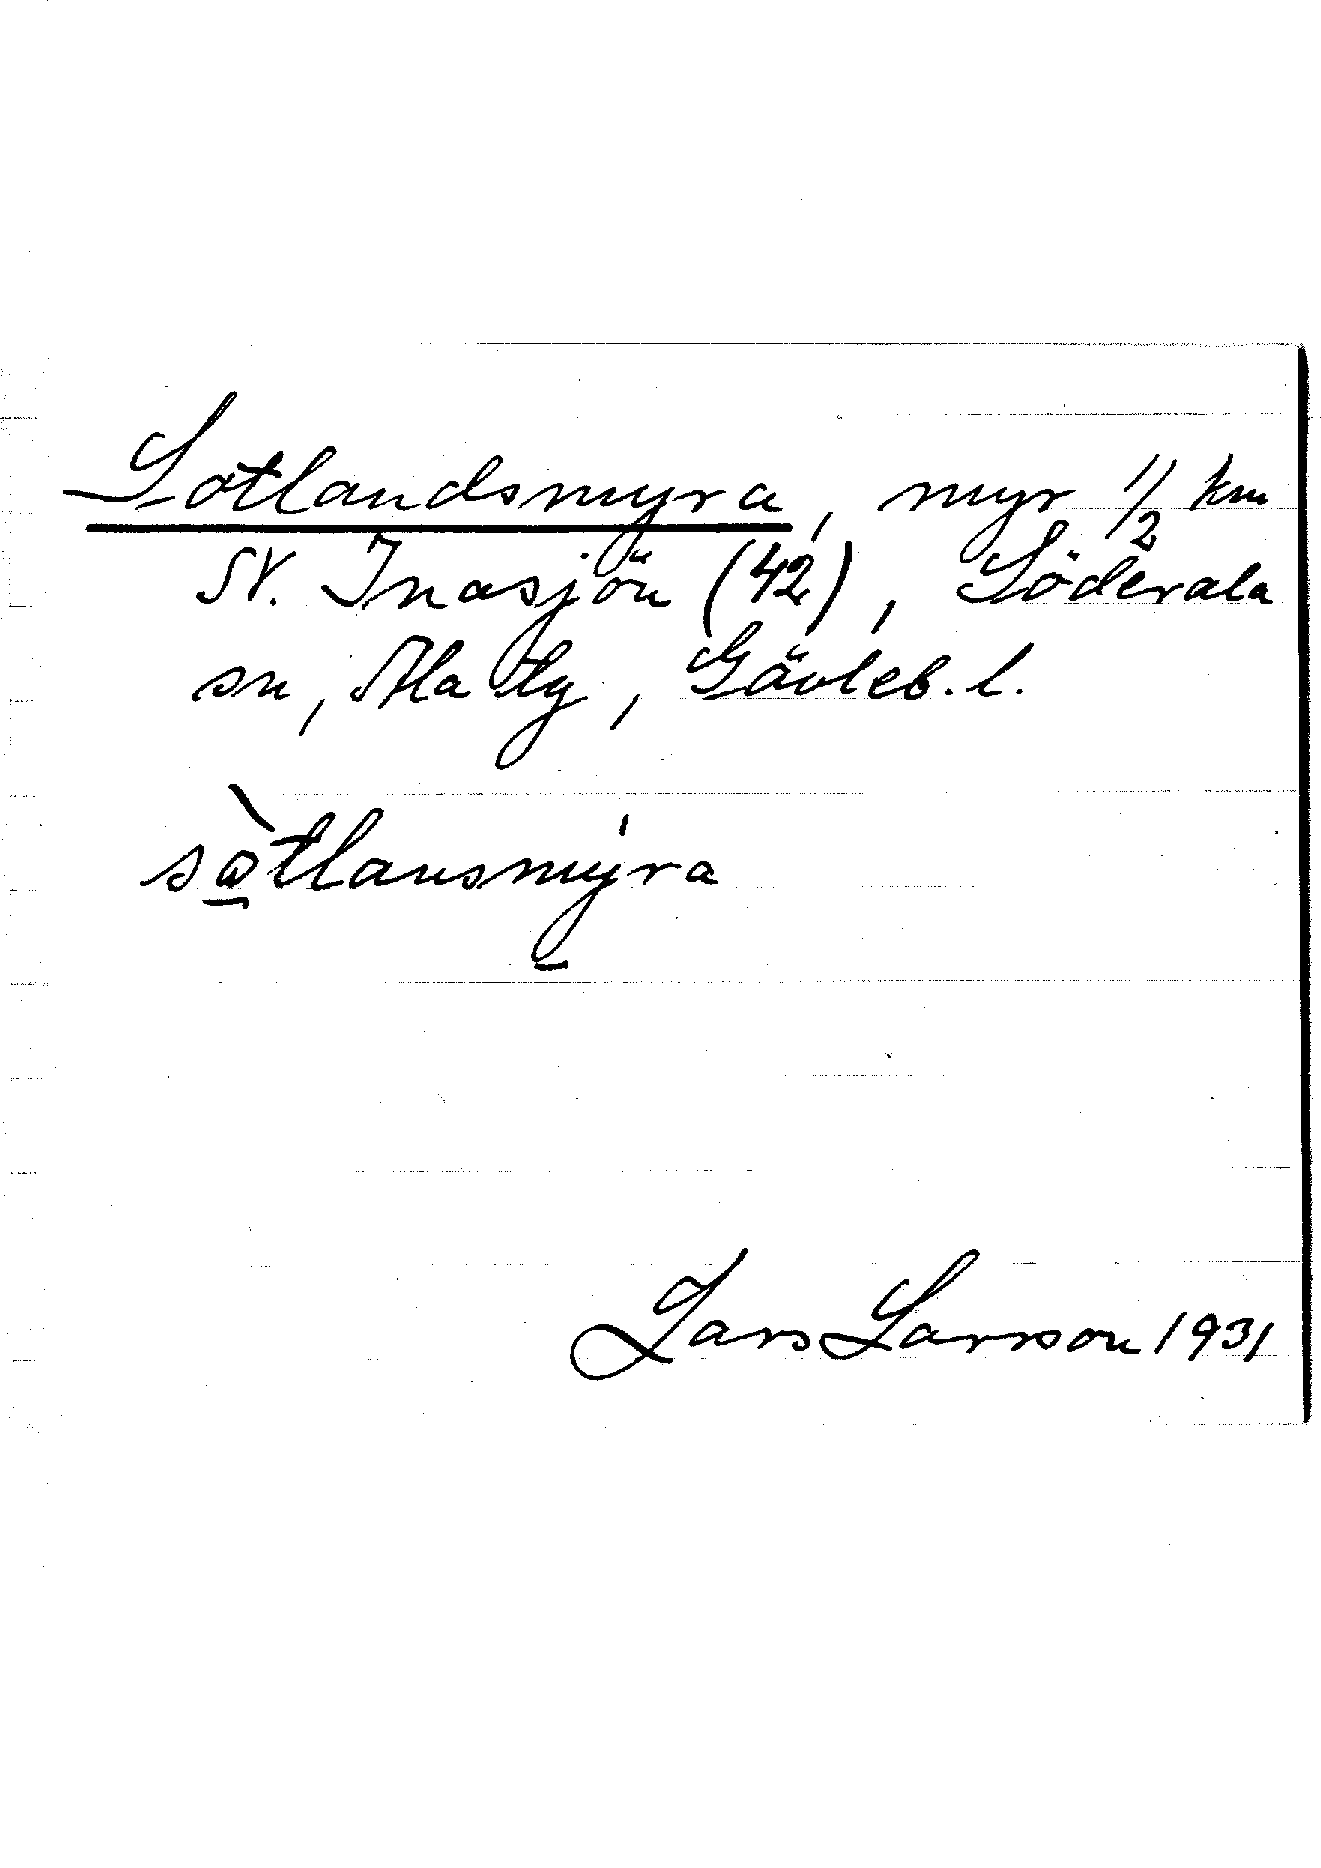 Sotlandsmyra, myr 1/2 km
N. Inasjön (42), Söderala
sn, Ala tg, Gävleb. l.
sòtlansmýra
Lars Larsson 1931